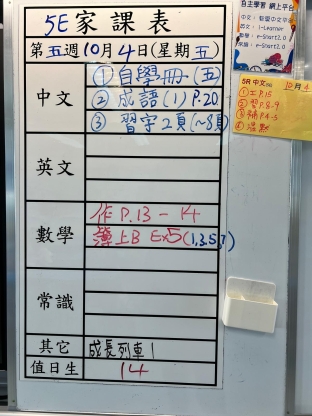 5E家課表
第五週10月4日(星期五)
中文
① 自學冊(五)
② 成語(1) P.20
③ 習字2頁(~8頁
英文
數學
作 P.13 - 14
簿上B Ex5(1.3.5,7)
常識
其它
成長列車1
值日生
14
自主學習 網上平台
5R 中文
10月4
① 工P.15
② 習P.8-9
③ 補P.4-5
④ 溫默